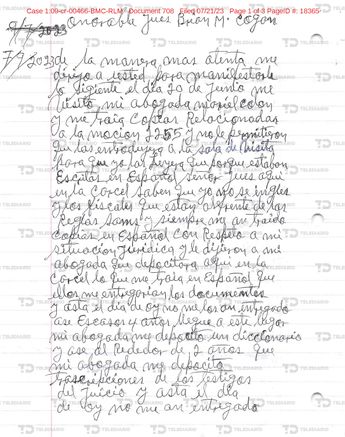 Case 1:09-cr-00466-BMC-RLM Document 708 Filed 07/21/23 Page 1 of 3 PageID #: 18365
onorable Jues Brian M. Cogan
7/9/2023
7/9/2023 de la manera mas atenta me
dirijo a usted para manifestarle
lo siguiente el dia 20 de Junio me
bisito mi abogada mariel colon
y me traia copias Relacionadas
a la mocion 2255 y no le permitieron
que las introdujera a la sala de bisita
para que yo las porque estaban
Escritas en Español señor Jues aqui
en la carcel saben que yo no se ingles
y los fiscales que estan de las
Reglas Sams y siempre me an traido
copias en Español con Respeto a mi
situacion Juridica y le dijeron a mi
abogada que depocitara aqui en la
carcel lo que me traia en Español que
ellos me entregarian los documentos
y asta el dia de oy no me los an entregado
ase Escasos 4 años llegue a este lugar
mi abogada me deposito un diccionario
y ase al Rededor de 2 años que
mi abogada me deposito
trascripciones de los testigos
del Juicio y asta el dia
de oy no me an entregado
TELEDIARIO